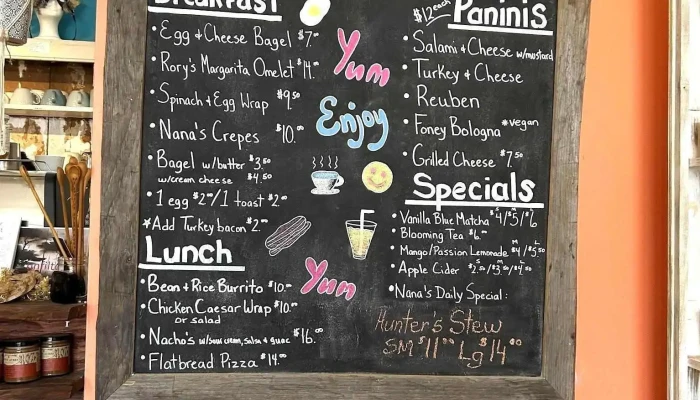 Breakfast
• Egg & Cheese Bagel $7.00
• Rory's Margarita Omelet $14.00
• Spinach & Egg Wrap $9.50
• Nana's Crepes $10.00
• Bagel w/butter $3.50
w/cream cheese $4.50
• 1 egg $2.00/1 toast $2.00
*Add Turkey bacon $2.00
Lunch
• Bean & Rice Burrito $10.00
• Chicken Caesar Wrap $10.00
or salad
• Nacho's w/sour cream, salsa, & guac $16.00
• Flatbread Pizza $14.00
Yum
Enjoy
Yum
$12 each Paninis
• Salami & Cheese w/mustard
• Turkey & Cheese
• Reuben
• Foney Bologna *vegan
• Grilled Cheese $7.50
Specials
• Vanilla Blue Matcha S $4/M $5/L $6
• Blooming Tea $6.00
• Mango/Passion Lemonade M $4/L $5.50
• Apple Cider S $2.50/M $3.50/L $4.50
• Nana's Daily Special:
Hunter's Stew
SM $11.00 Lg $14.00